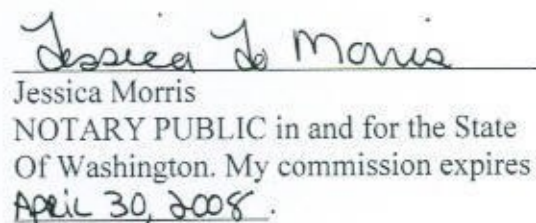 Jessica Jo Morris
Jessica Morris
NOTARY PUBLIC in and for the State
Of Washington. My commission expires
April 30, 2008.